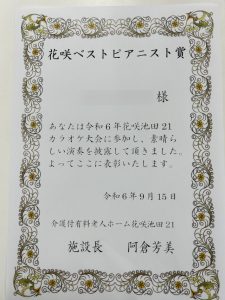 花咲ベストピアニスト賞
様
あなたは令和６年花咲池田21
カラオケ大会に参加し、素晴ら
しい演奏を披露して頂きました。
よってここに表彰いたします。
令和６年９月１５日
介護付有料老人ホーム花咲池田21
施設長　阿倉芳美